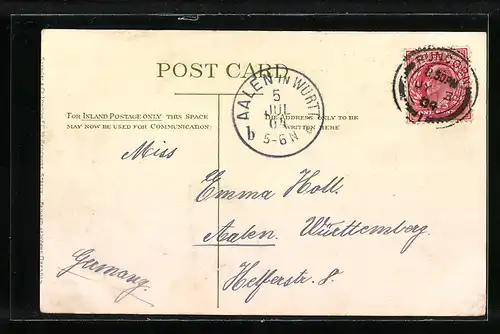 POST CARD
RUNCORN
8.30PM
AALEN IN WÜRTT
5
JUL
b 5-6N
FOR INLAND POSTAGE ONLY THIS SPACE
MAY NOW BE USED FOR COMMUNICATION:
THE ADDRESS ONLY TO BE
WRITTEN HERE
Miss
Emma Holl.
Aalen. Württemberg.
Helferstr. 8.
Germany.